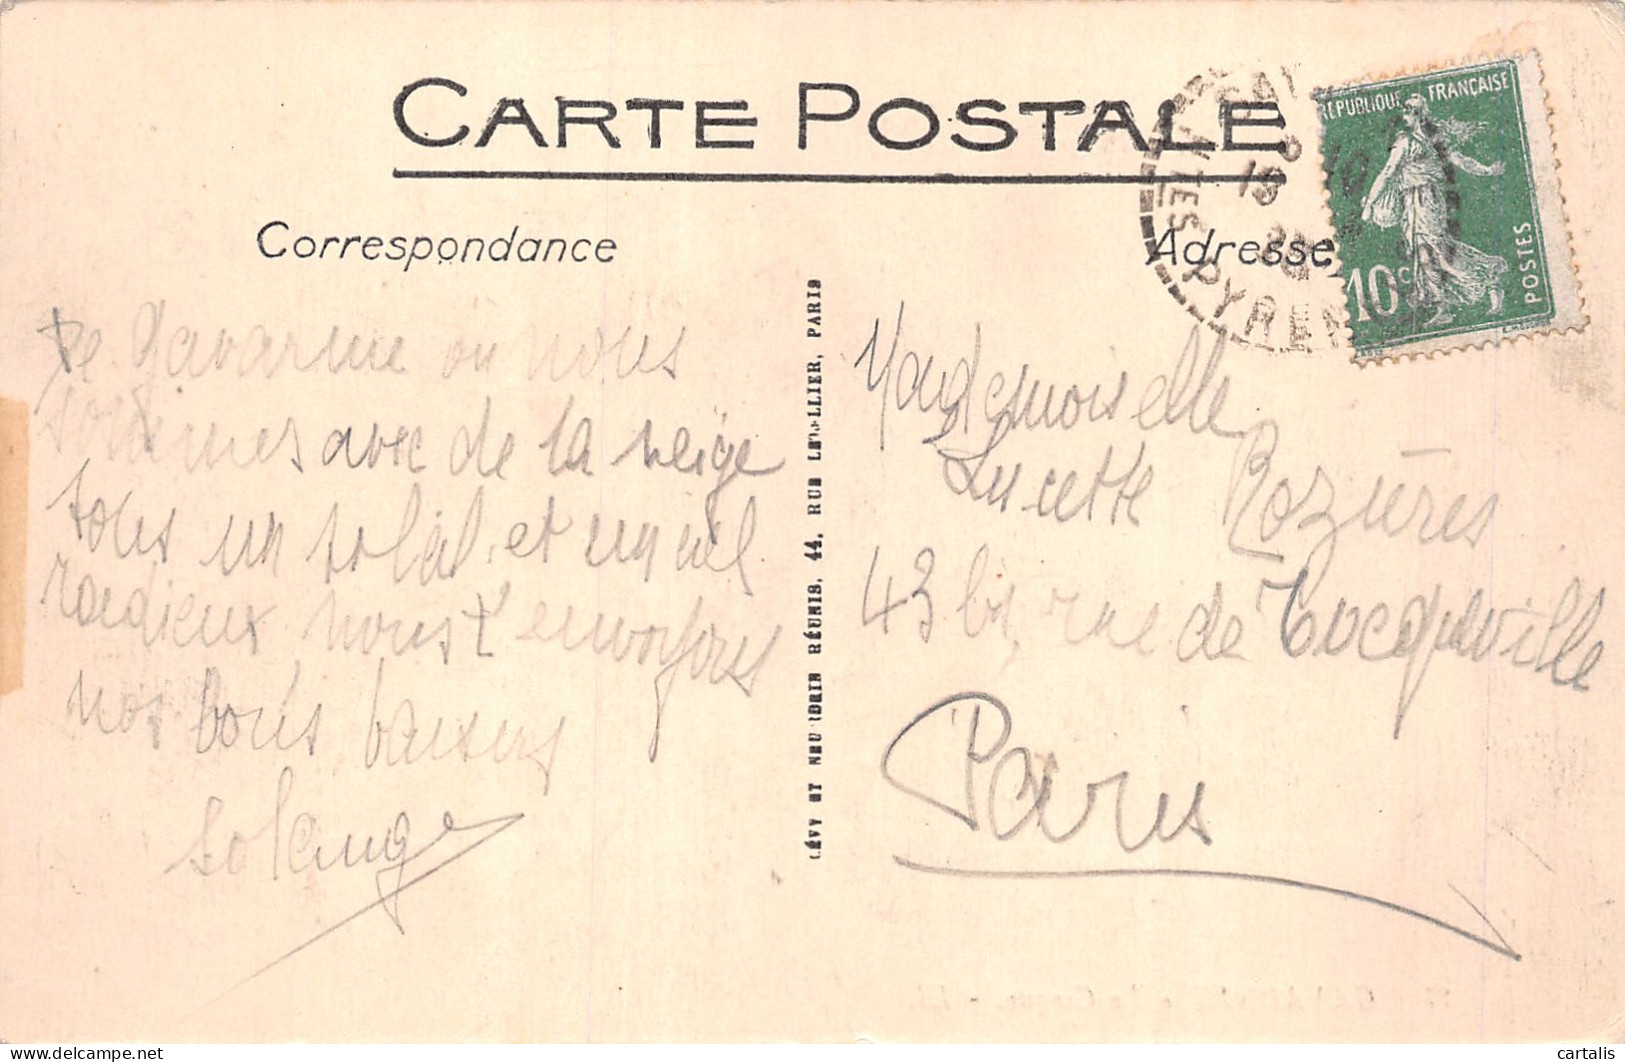 CARTE POSTALE
Correspondance
Adresse
RÉPUBLIQUE FRANÇAISE
10c
POSTES
HTES PYRENE
De Gavarnie ou nous
sommes avec de la neige
sous un soleil et un ciel
radieux nous t'envoyons
nos bons baisers
Solange
LÉVY ET NEURDEIN RÉUNIS, 44, RUE LETELLIER, PARIS
Mademoiselle
Lucette Rozières
43 bis, rue de Tocqueville
Paris
delcampe.net
cartalis